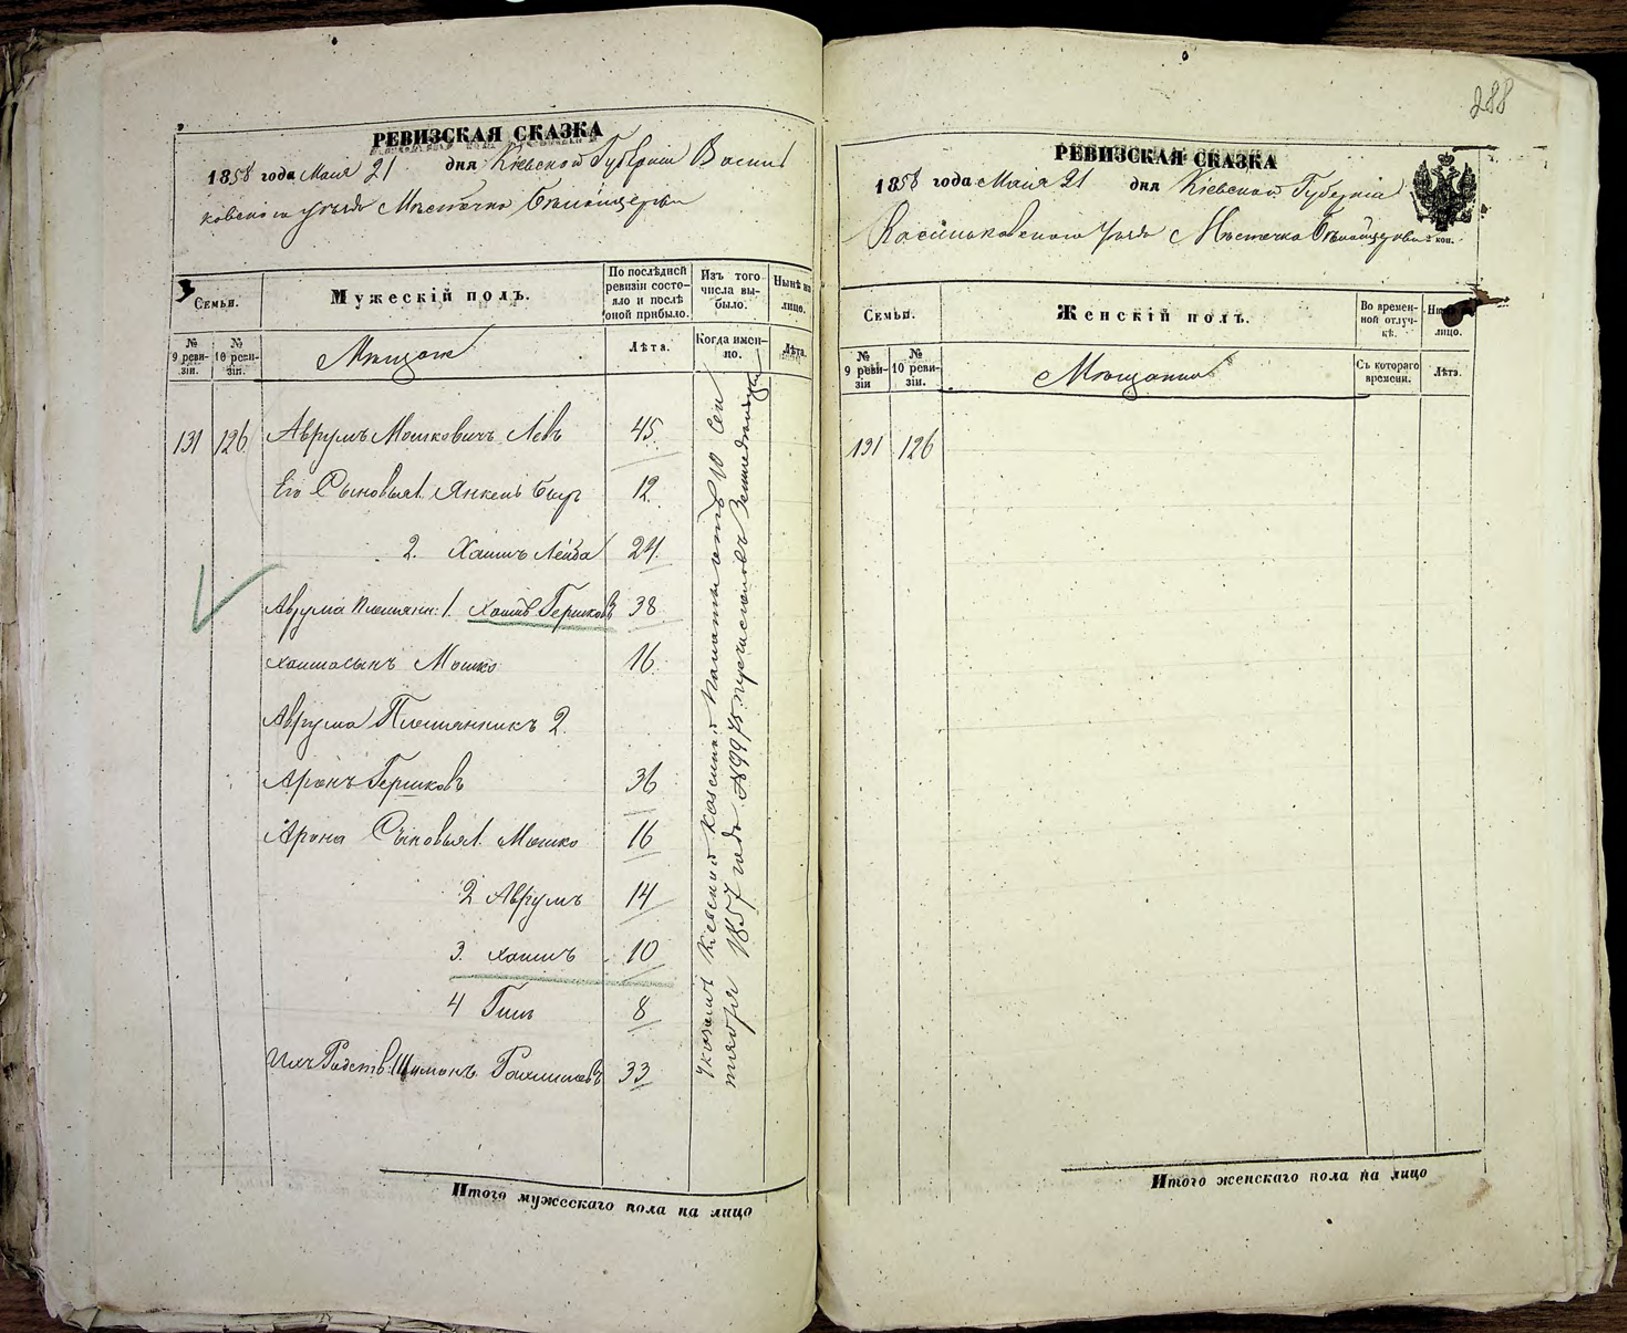 288
РЕВИЗСКАЯ СКАЗКА
1858 года Мая 21 дня Кіевской Губерніи Василь
ковскаго уѣзда Мѣстечка Бѣлойцеркви
Семьи.
Мужескій полъ.
По послѣдней ревизіи состо-
яло и послѣ
оной прибыло.
Изъ того
числа вы-
было.
Нынѣ на
лицо.
№
9 реви-
зіи.
№
10 реви-
зіи.
Мѣщане
Лѣта.
Когда имен-
но.
Лѣта.
131 126 Аврумъ Мошковичъ Левъ 45
Его Сыновья 1. Янкель Беръ 12
2. Хаимъ Лейба 24
Аврума Племянн: 1. Хаимъ Гершковъ 38
Хаима сынъ Мошко 16
Аврума Племянникъ 2.
Аронъ Гершковъ 36
Арона Сыновья 1. Мошко 16
2 Аврумъ 14
3. Хаимъ 10
4 8
Ихъ Родств: Шимонъ 33
Указомъ Кіевской Казенной Палаты отъ 10 Сен
тября 1857 года № 9975 перечисленъ
Итого мужескаго пола на лицо
РЕВИЗСКАЯ СКАЗКА
1858 года Мая 21 дня Кіевской Губерніи
Васильковскаго уѣзда Мѣстечка Бѣлойцеркви
коп.
Семьи.
Женскій полъ.
Во времен-
ной отлуч-
кѣ.
лицо.
№
9 реви-
зіи
№
10 реви-
зіи.
Мѣщанки
Съ котораго
времени.
Лѣта.
131 126
Итого женскаго пола на лицо